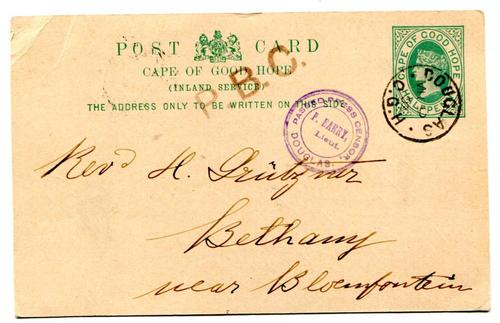 POST CARD
CAPE OF GOOD HOPE
(INLAND SERVICE)
THE ADDRESS ONLY TO BE WRITTEN ON THIS SIDE
P.B.C.
CAPE OF GOOD HOPE
HALFPENNY
DOUGLAS
PASSED PRESS CENSOR,
F. HARRY,
Lieut.
DOUGLAS.
Revd H. Grützner
Bethany
near Bloemfontein